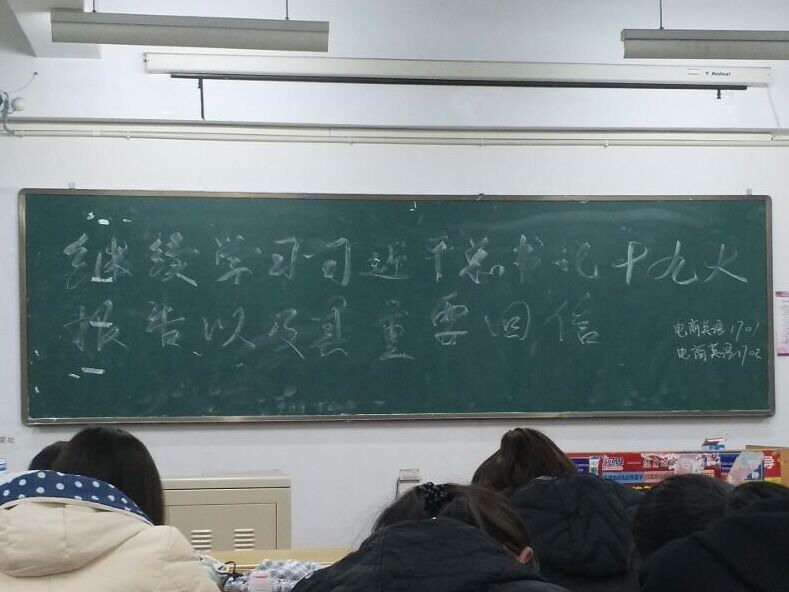 Redleaf
继续学习习近平总书记十九大
报告以及其重要回信
电商英语1701
电商英语1702